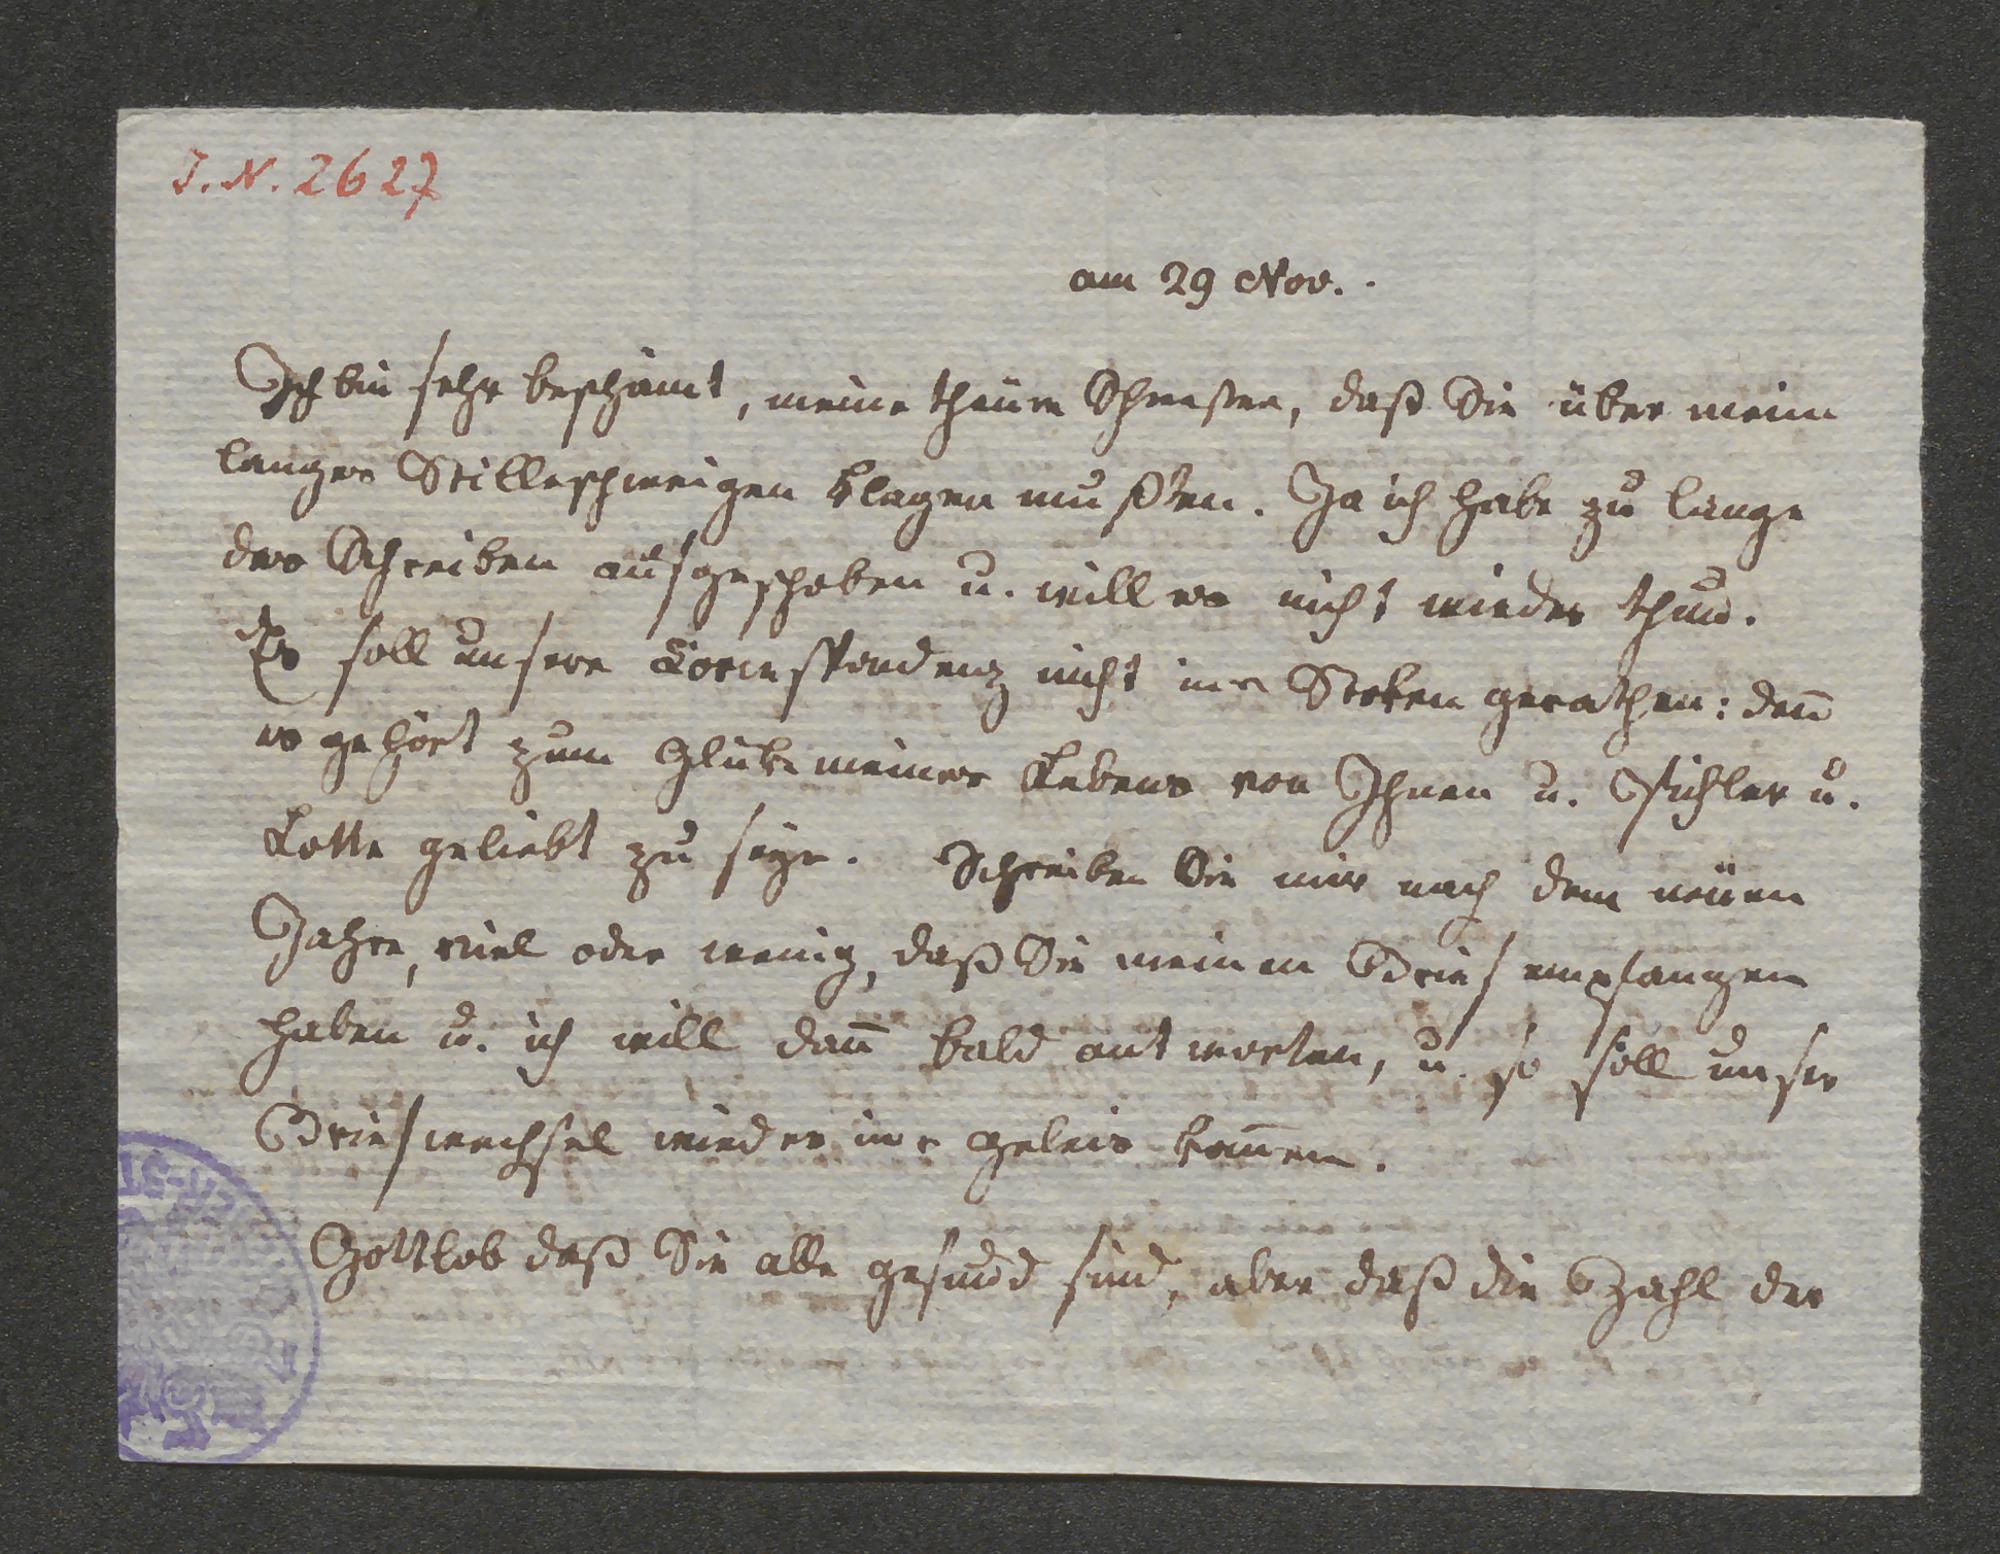 J. N. 2627
am 29 Nov.
Ich bin sehr beschämt, meine theure Schwester, daß Sie über mein
langes Stilleschweigen klagen mußten. Ja ich habe zu lange
das Schreiben aufgeschoben u. will es nicht wieder thun.
Es soll unsere Correspondenz nicht ins Stoken gerathen: den̄
es gehört zum Glük meines Lebens von Ihnen u. Pichler u.
Lotte geliebt zu seyn. Schreiben Sie mir nach dem neuen
Jahre, viel oder wenig, daß Sie meinen Brief empfangen
haben u. ich will dan̄ bald antworten, u. so soll unser
Briefwechsel wieder ins Geleis kom̄en.
Gottlob daß Sie alle gesund sind, aber daß die Zahl der